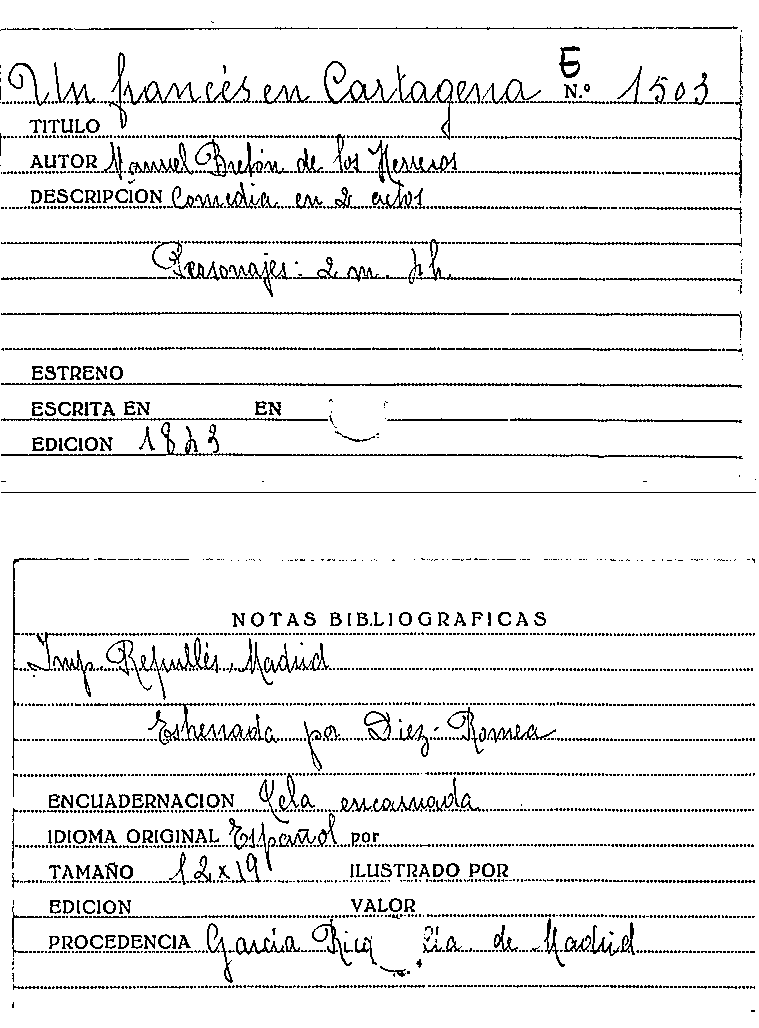 Un francés en Cartagena E N.º 1503
TITULO
AUTOR Manuel Bretón de los Herreros
DESCRIPCION Comedia en 2 actos
Personajes: 2 m. 4 h.
ESTRENO
ESCRITA EN EN
EDICION 1843
NOTAS BIBLIOGRAFICAS
Imp. Repullés, Madrid
Estrenada por Diez-Romea
ENCUADERNACION Tela encarnada
IDIOMA ORIGINAL Español por
TAMAÑO 12x19 ILUSTRADO POR
EDICION VALOR
PROCEDENCIA García Rico de Madrid